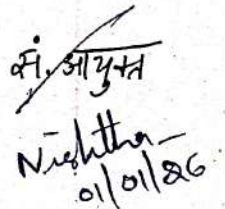 सं. आयुक्त
Nishtha
01/01/26